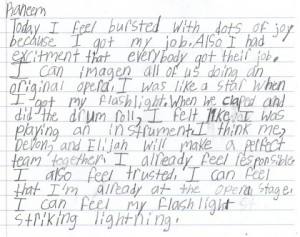 Raheem
Today I feel bursted with dots of joy
because I got my job. Also I had
excitment that everybody got their job.
I can imagen all of us doing an
original opera. I was like a star when
I got my flashlight. When we claped and
did the drum roll, I felt like I was
playing an instrument. I think me,
Devon, and Elijah will make a perfect
team together. I already feel responsible.
I also feel trusted. I can feel
that I'm already at the opera stage.
I can feel my flashlight
striking lightning.